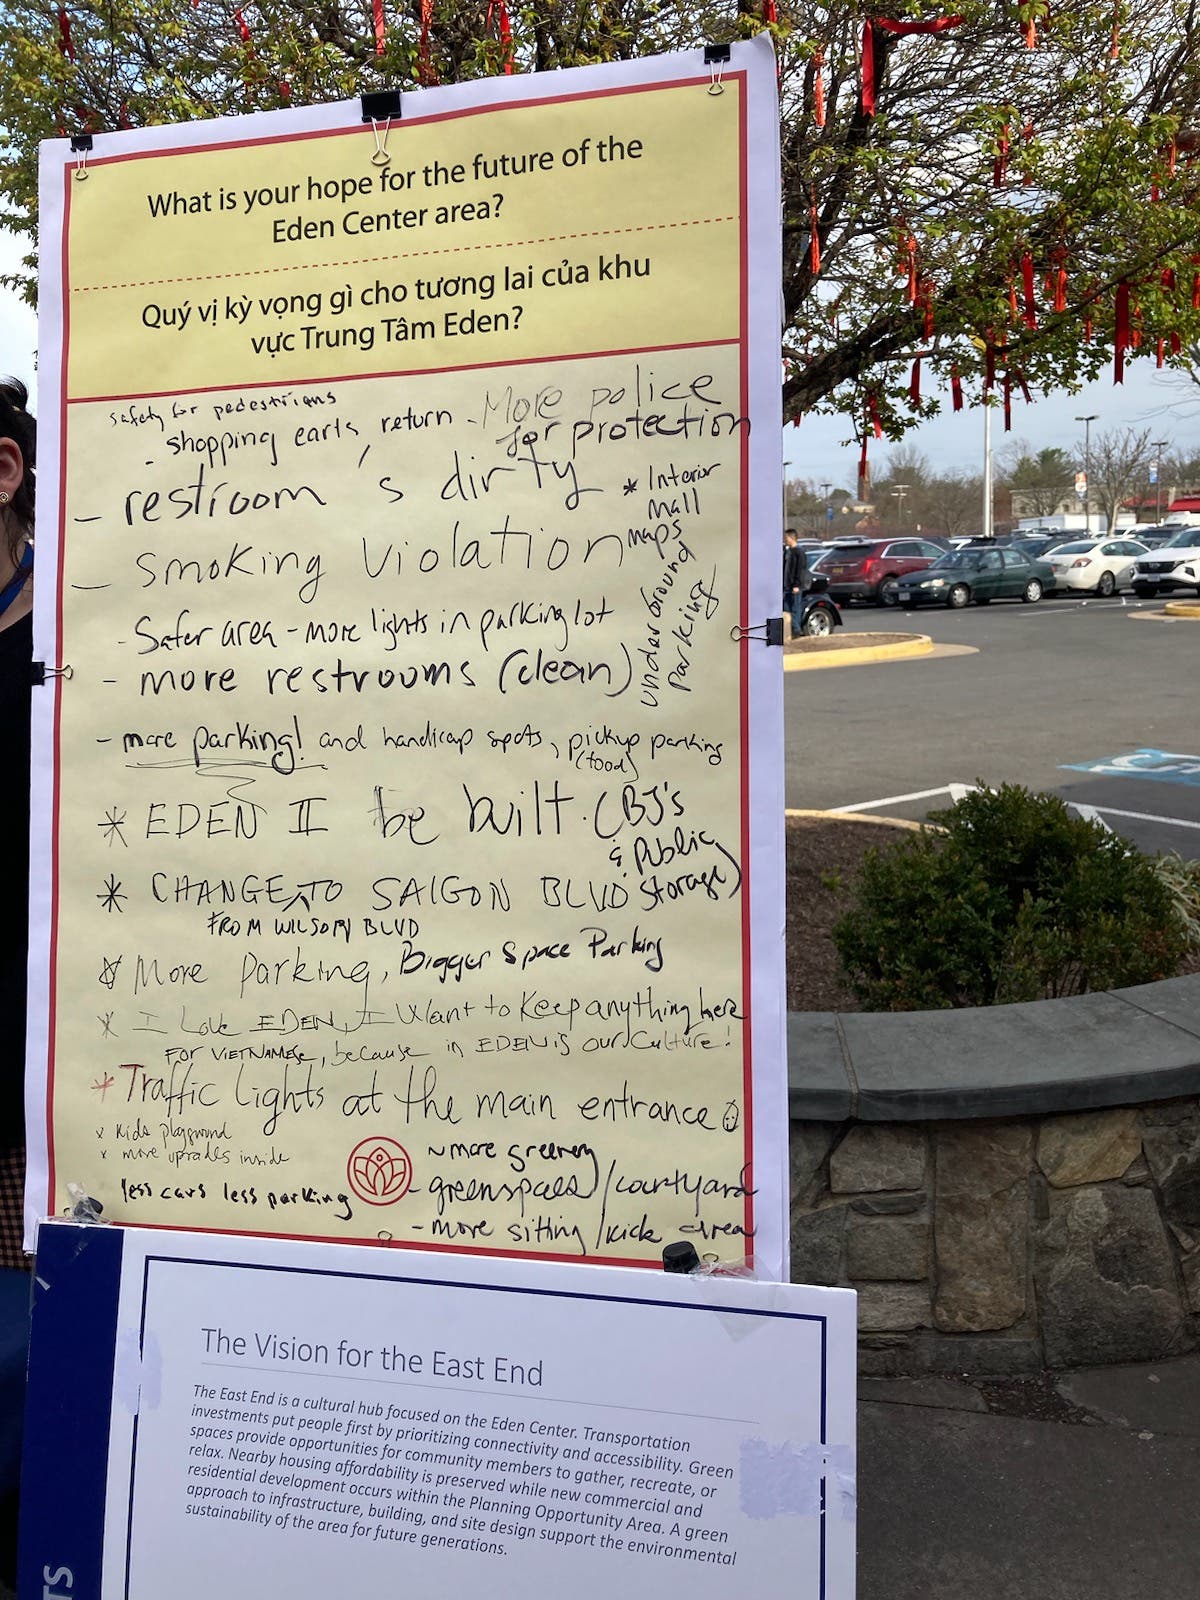 What is your hope for the future of the
Eden Center area?
Quý vị kỳ vọng gì cho tương lai của khu
vực Trung Tâm Eden?
safety for pedestrians
- shopping carts return
- More police
for protection
- restroom's dirty
* Interior
Mall
maps
- smoking Violation
underground
parking
- Safer area - more lights in parking lot
- more restrooms (clean)
- more parking! and handicap spots, pickup parking
(food)
* EDEN II be built. (BJ's
& Public
Storage)
* CHANGE TO SAIGON BLVD
FROM WILSON BLVD
* More Parking, Bigger Space Parking
* I Love EDEN, I Want to Keep anything here
FOR VIETNAMESE, because in EDEN is our Culture!
* Traffic Lights at the main entrance
x Kids playground
x more upgrades inside
less cars less parking
~ more greenery
- greenspaces/courtyard
- more sitting/kick area
The Vision for the East End
The East End is a cultural hub focused on the Eden Center. Transportation
investments put people first by prioritizing connectivity and accessibility. Green
spaces provide opportunities for community members to gather, recreate, or
relax. Nearby housing affordability is preserved while new commercial and
residential development occurs within the Planning Opportunity Area. A green
approach to infrastructure, building, and site design support the environmental
sustainability of the area for future generations.
TS